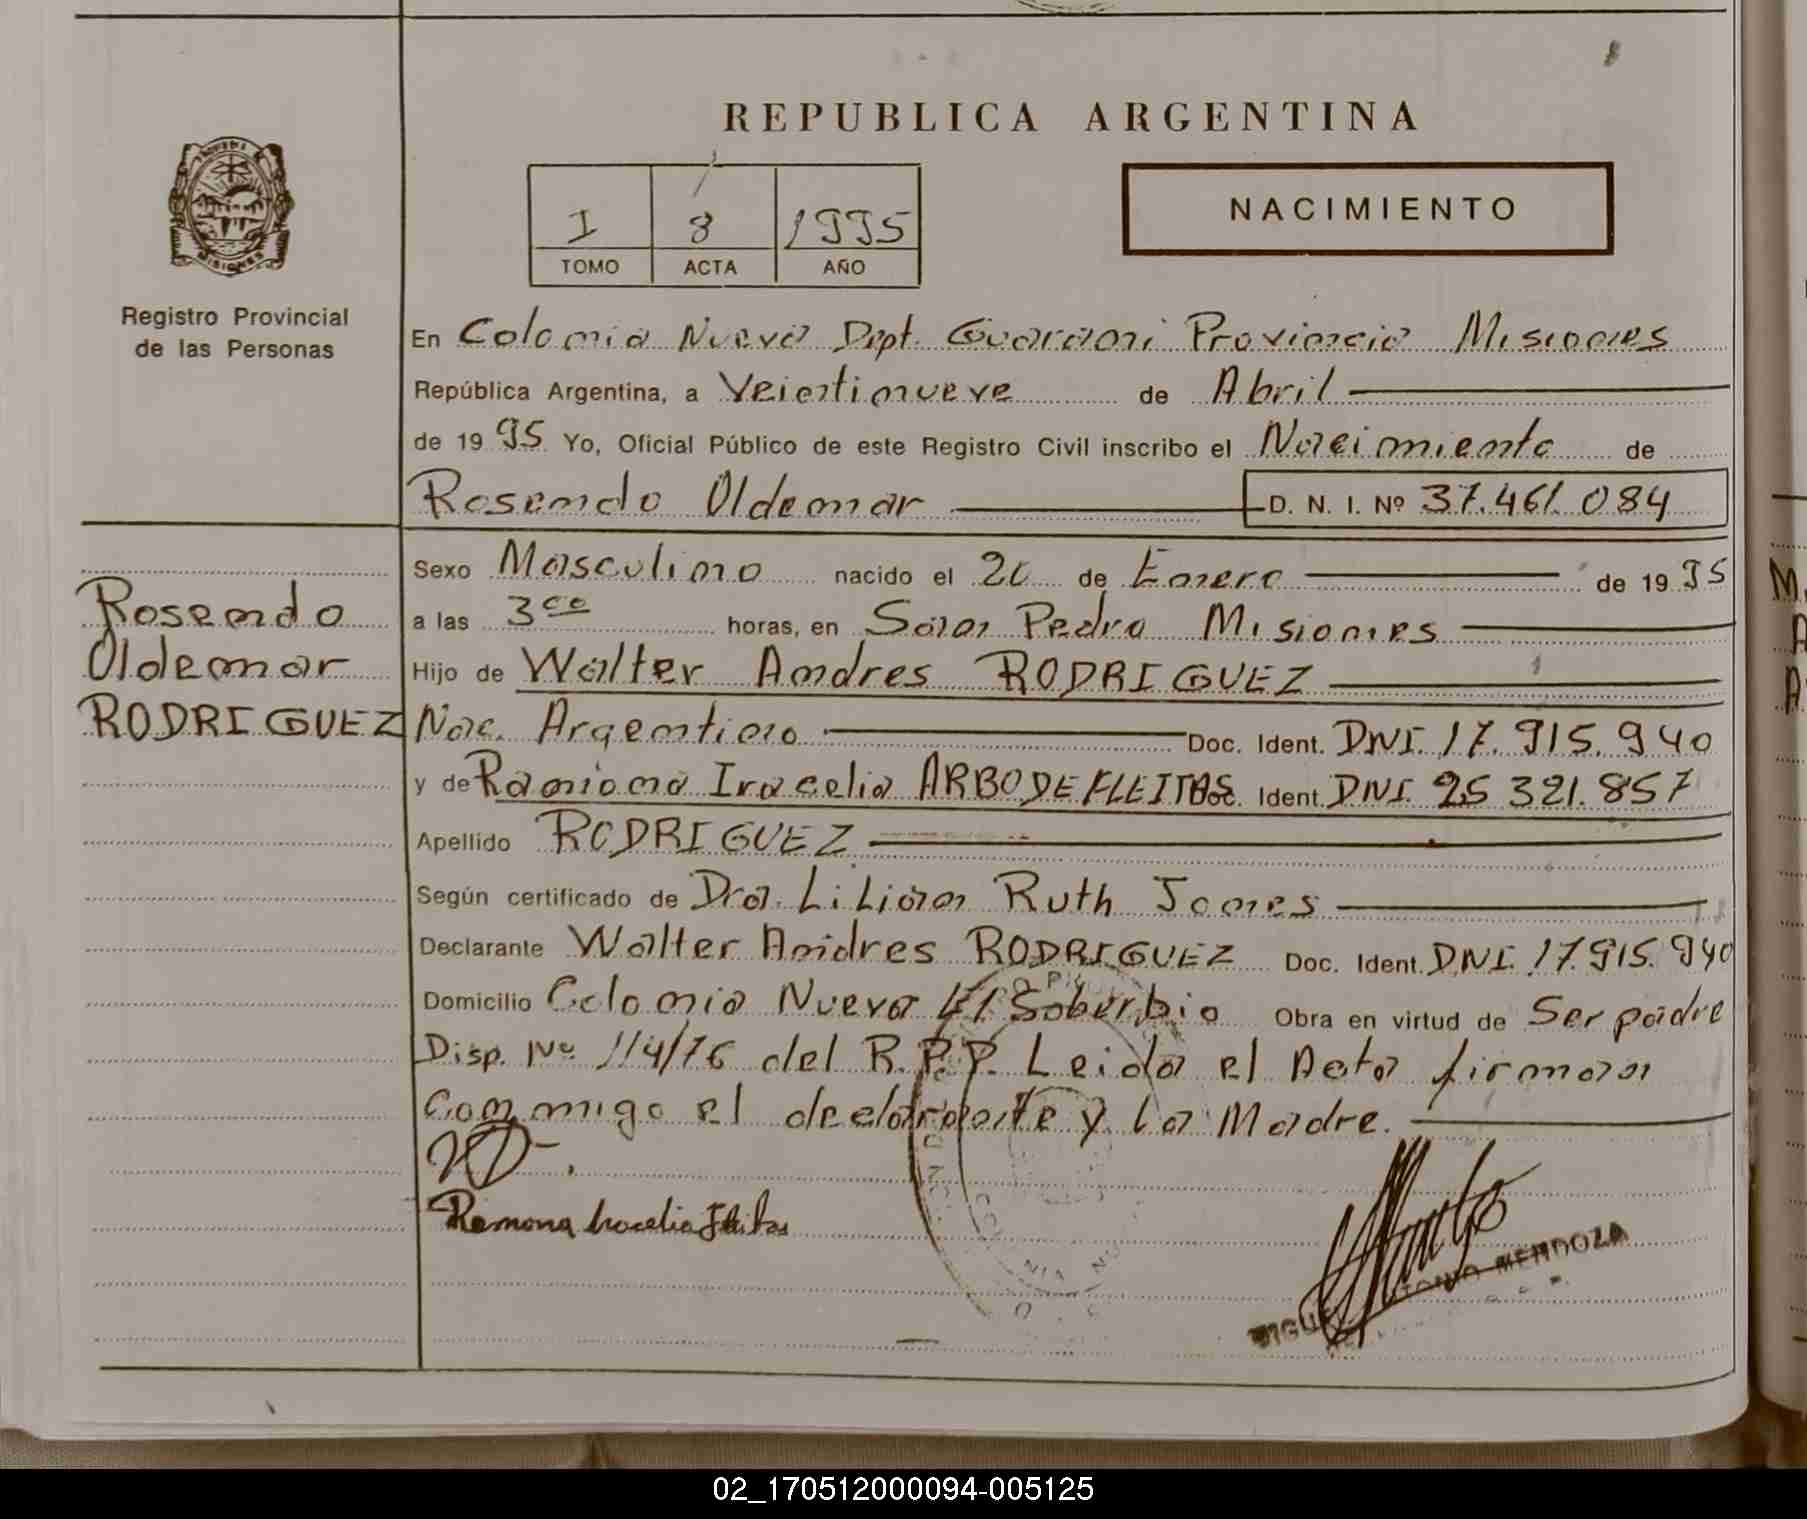 REPUBLICA ARGENTINA
MISIONES
Registro Provincial
de las Personas
I 8 1995
TOMO ACTA AÑO
NACIMIENTO
En Colonia Nueva Dept. Guarani Provincia Misiones
República Argentina, a Veintinueve de Abril
de 1995 Yo, Oficial Público de este Registro Civil inscribo el Nacimiento de
Rosendo Oldemar D. N. I. Nº 37.461.084
Rosendo
Oldemar
RODRIGUEZ
Sexo Masculino nacido el 20 de Enero de 1995
a las 3 00 horas, en San Pedro Misiones
Hijo de Walter Andres RODRIGUEZ
Nac. Argentino Doc. Ident. DNI. 17.915.940
y de Ramona Iracelia ARBO DE FLEITAS Doc. Ident. DNI. 25 321.857
Apellido RODRIGUEZ
Según certificado de Dra. Lilian Ruth Jones
Declarante Walter Andres RODRIGUEZ Doc. Ident. DNI. 17.915.940
Domicilio Colonia Nueva El Soberbio Obra en virtud de Ser padre
Disp. Nº 114/76 del R.P.P. Leida el Acta firman
conmigo el declarante y la Madre.
Ramona Iracelia Fleitas
MIGUEL ANTONIO MENDOZA
02_170512000094-005125